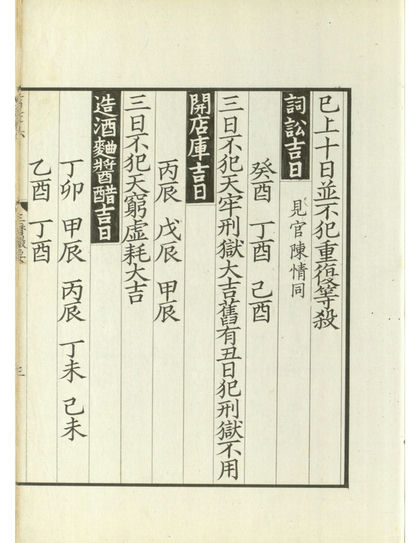 已上十日並不犯重復等殺
詞訟吉日 見官陳情同
癸酉 丁酉 己酉
三日不犯天牢刑獄大吉舊有丑日犯刑獄不用
開店庫吉日
丙辰 戊辰 甲辰
三日不犯天窮虚耗大吉
造酒麯醬醋吉日
丁卯 甲辰 丙辰 丁未 己未
乙酉 丁酉
三